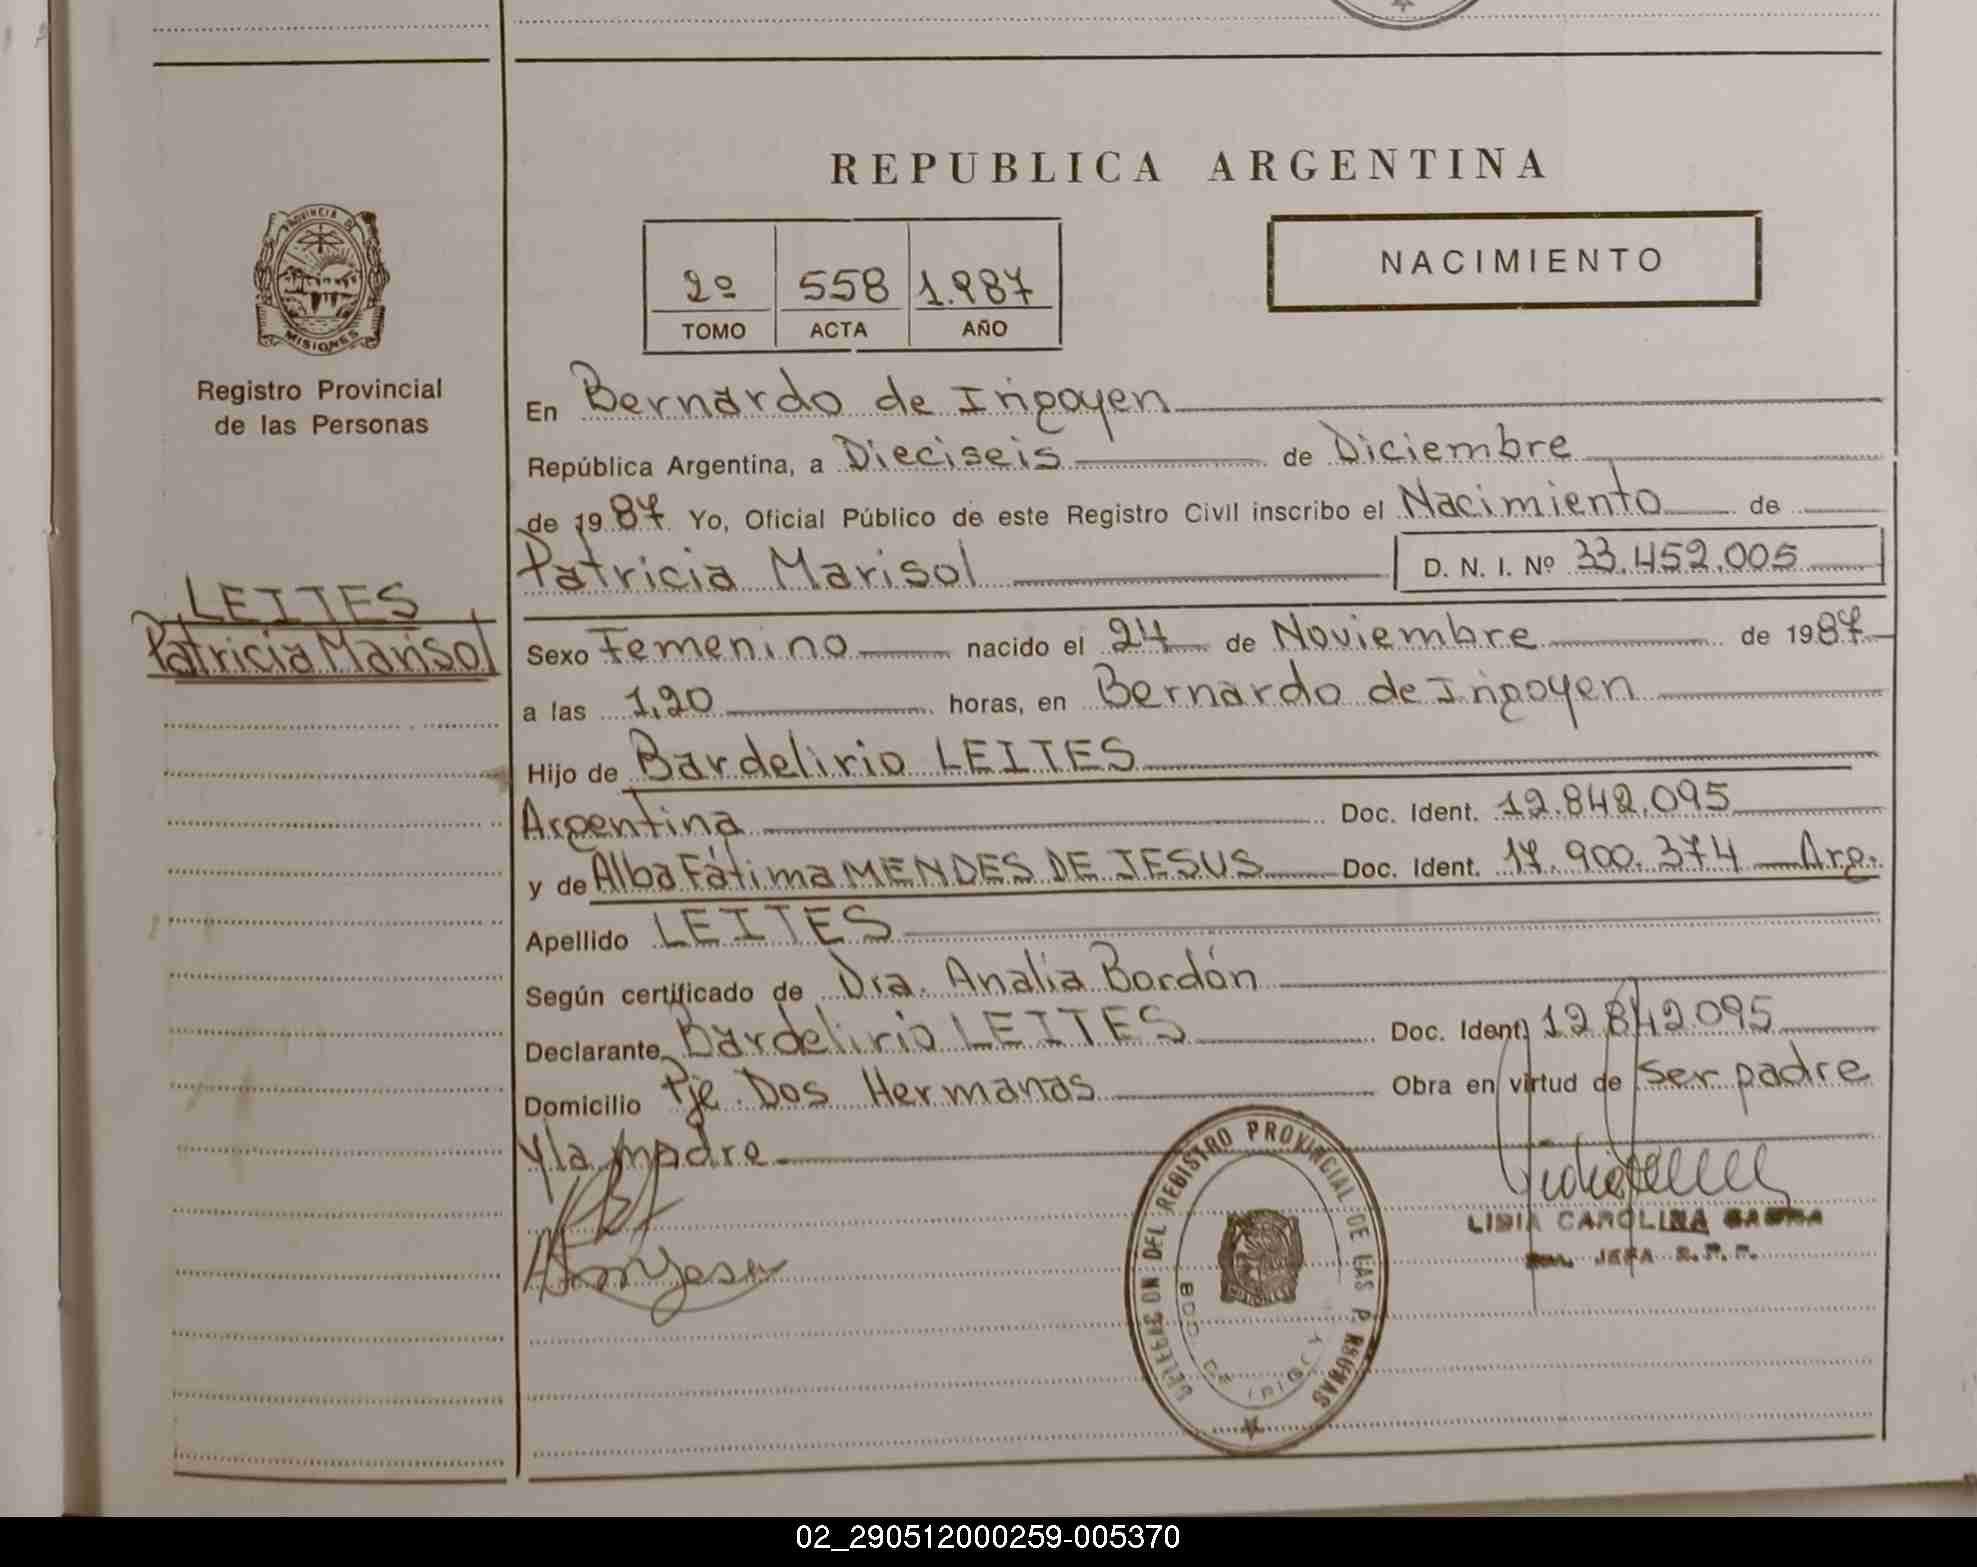 REPUBLICA ARGENTINA
PROVINCIA DE
MISIONES
Registro Provincial
de las Personas
2º 558 1.987
TOMO ACTA AÑO
NACIMIENTO
En Bernardo de Irigoyen
República Argentina, a Dieciseis de Diciembre
de 1987 Yo, Oficial Público de este Registro Civil inscribo el Nacimiento de
Patricia Marisol D. N. I. Nº 33.452.005
LEITES
Patricia Marisol
Sexo Femenino nacido el 24 de Noviembre de 1987
a las 1,20 horas, en Bernardo de Irigoyen
Hijo de Bardelirio LEITES
Argentina Doc. Ident. 12.842.095
y de Alba Fátima MENDES DE JESUS Doc. Ident. 17.900.374 Arg.
Apellido LEITES
Según certificado de Dra. Analia Bordón
Declarante Bardelirio LEITES Doc. Ident. 12.842.095
Domicilio Pje. Dos Hermanas Obra en virtud de ser padre
y la madre
DELEGACION DEL REGISTRO PROVINCIAL DE LAS PERSONAS
MISIONES
LIDIA CAROLINA
JEFA R. P. P.
02_290512000259-005370